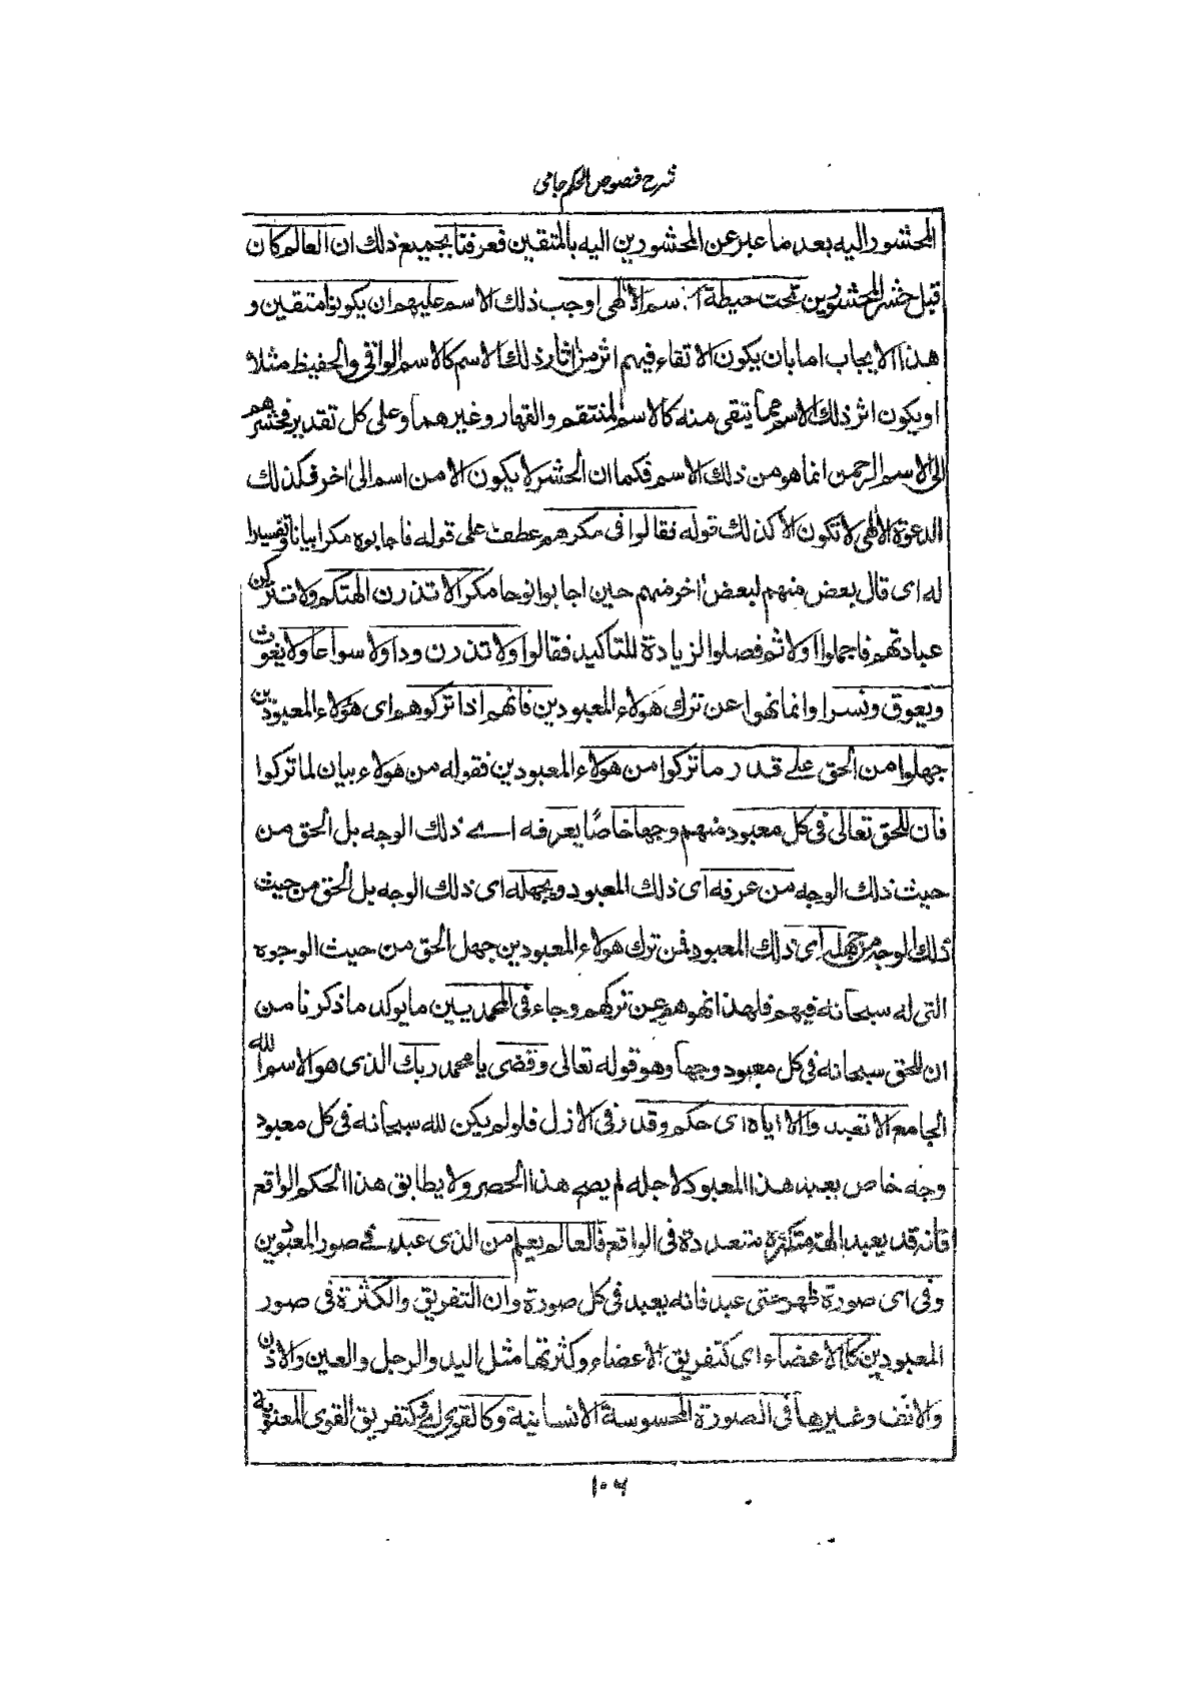 شرح فصوص الحكم جامى
المحشور اليه بعد ما عبر عن المحشورين اليه بالمتقين فعرفنا بجميع ذلك ان العالم كان
قبل حشر المحشورين تحت حيطة اسم الالهى اوجب ذلك الاسم عليهم ان يكونوا متقين و
هذا الايجاب اما بان يكون الاتقاء فيهم اثر من اثار ذلك الاسم كالاسم الواقى والحفيظ مثلا
او يكون اثر ذلك الاسم مما يتقى منه كالاسم المنتقم والقهار وغيرهما وعلى كل تقدير فحشرهم
الى الاسم الرحمن انما هو من ذلك الاسم فكما ان الحشر لا يكون الا من اسم الى اخر فكذلك
الدعوة الالهى لا تكون الا كذلك قوله فقالوا فى مكرهم عطف على قوله فاجابوه مكرا بيانا وتفسيرا
له اى قال بعض منهم لبعض اخر منهم حين اجابوا نوحا مكرا لا تذرن الهتكم ولا تتركن
عبادتهم فاجملوا اولا ثم فصلوا لزيادة للتاكيد فقالوا ولا تذرن ودا ولا سواعا ولا يغوث
ويعوق ونسرا وانما نهوا عن ترك هولاء المعبودين فانهم اذا تركوهم اى هولاء المعبودين
جهلوا من الحق على قدر ما تركوا من هولاء المعبودين فقوله من هولاء بيان لما تركوا
فان للحق تعالى فى كل معبود منهم وجها خاصًا يعرفه اى ذلك الوجه بل الحق من
حيث ذلك الوجه من عرفه اى ذلك المعبود ويجهله اى ذلك الوجه بل الحق من حيث
ذلك الوجه من جهله اى ذلك المعبود فمن ترك هولاء المعبودين جهل الحق من حيث الوجوه
التى له سبحانه فيهم فلهذا نهوهم عن تركهم وجاء فى المحمديين ما يوكد ما ذكرنا من
ان للحق سبحانه فى كل معبود وجها وهو قوله تعالى وقضى يا محمد ربك الذى هو الاسم الله
الجامع الا تعبدوا الا اياه اى حكم وقدر فى الازل فلو لم يكن لله سبحانه فى كل معبود
وجه خاص يعبد هذا المعبود لاجله لم يصح هذا الحصر ولا يطابق هذا الحكم الواقع
فانه قد يعبد الهة متكثرة متعددة فى الواقع فالعالم يعلم من الذى عبد فى صور المعبودين
وفى اى صورة ظهر حتى عبد فانه يعبد فى كل صورة وان التفريق والكثرة فى صور
المعبودين كالاعضاء اى كتفريق الاعضاء وكثرتها مثل اليد والرجل والعين والاذن
والانف وغيرها فى الصورة المحسوسة الانسانية وكالقوى اى كتفريق القوى المعنوية
١٠٦